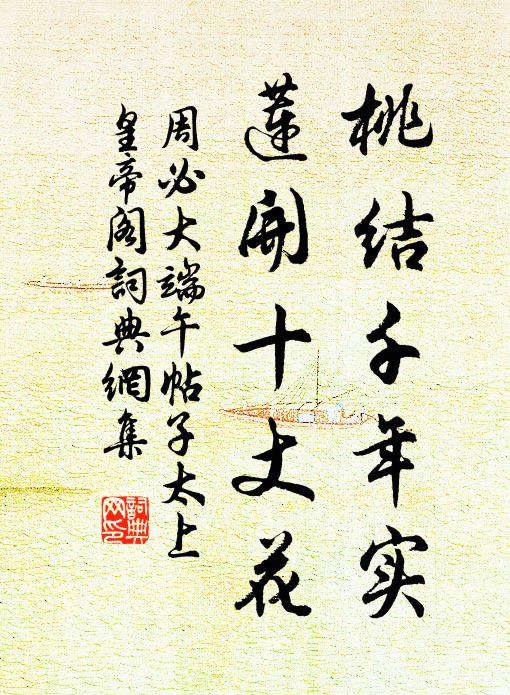 桃结千年实
莲開十丈花
周必大端午帖子太上
皇帝阁詞典網集
詞典
网印